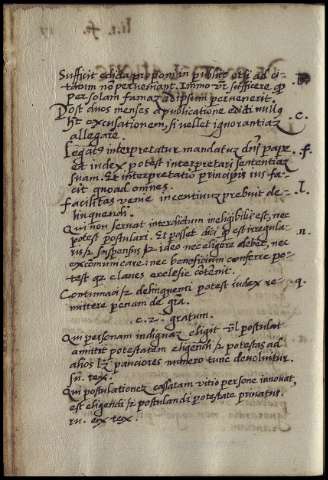 li. 1. fo.
Sufficit edicta proponi in publico etsi ad ci-
tatum nō perveniant. Immo vr̄ sufficere qp
per solam famaz ad ipsum pervenerit.
Post duos menses a publicatione edicti nullo
hēt excusationem, si vellet ignorantiaz
allegare. .c.
Legatꝰ interpretatur mandatuz dn̄i pape
et iudex potest interpretari sententiaz .f.
suam. Et interpretatio principis ius fa-
cit quoad omnes.
Facilitas venie incentiuuz prebuit de- .l.
linquendi.
Qui non seruat interdictum ineligibilis est, nec
potest postulari. Et posset dici qp est irregula-
ris et suspensus et ideo nec eligere debet, nec .n.
excōmunicare: nec beneficium conferre po-
testꝫ claues ecclesie cōtēnit.
Contumacis et delinquenti potest iudex re- .q.
mittere penam de gr̄a.
.c. 2. gratum.
Qui personam indignaz eligit vl̓ postulat
amittit potestatem eligendi et potestas ad
alios et pauciores numero tunc devoluitur.
in tex.
Qui postulationez cassatam vitio persone innouat,
est eligendi et postulandi potestate priuatus.
tex.